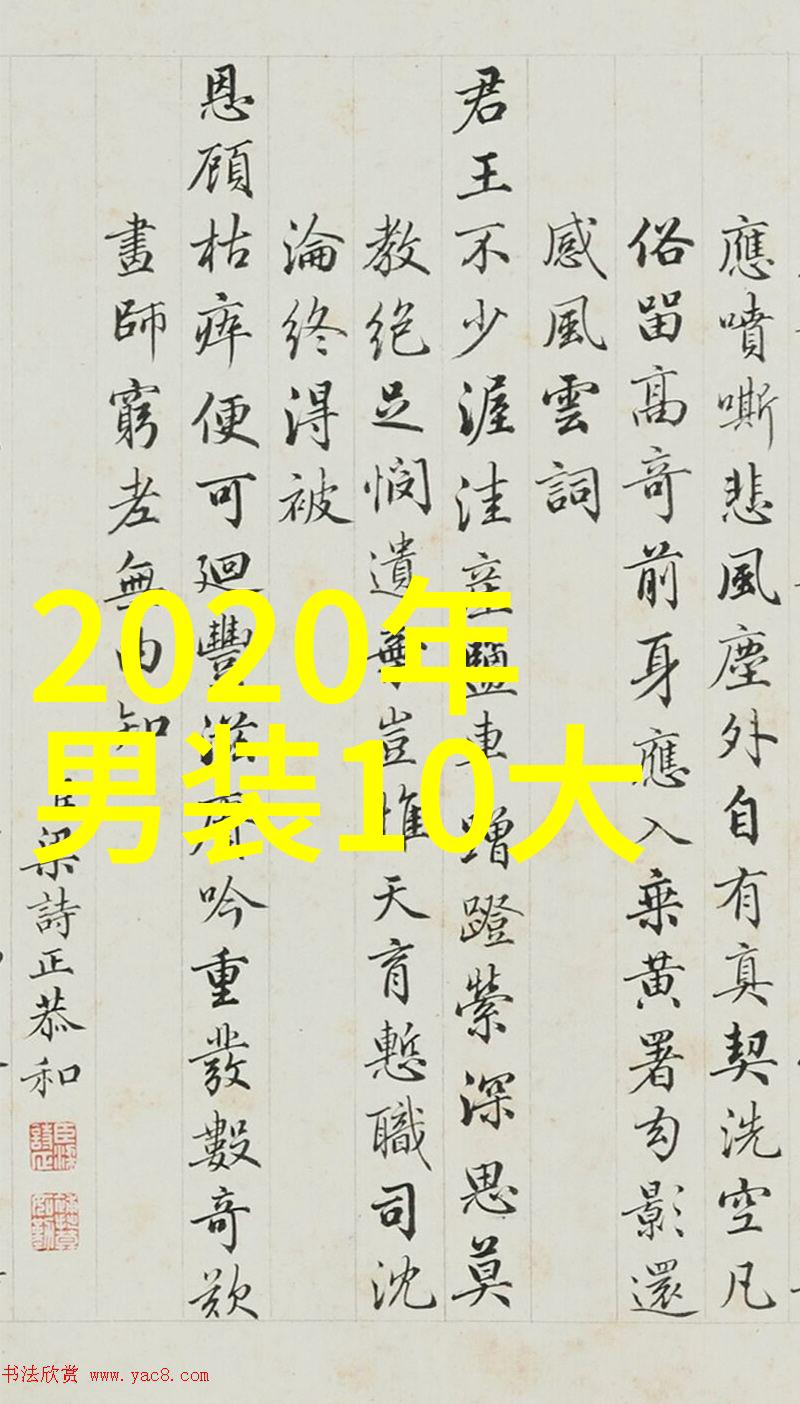 應噴嘶悲風塵外自有真契洗空凡
俗留高奇前身應入乘黃署勾影還
感風雲詞
君王不少渥洼產鹽車蹭蹬縈深思莫
教絕足憫遺豈惟天育慙職司沈
淪終淂被
恩顧枯痺便可廻豐滋吟重發數奇歎
畫師窮老無知
臣梁詩正恭和
2020年
男装10大
书法欣赏 www.yac8.com